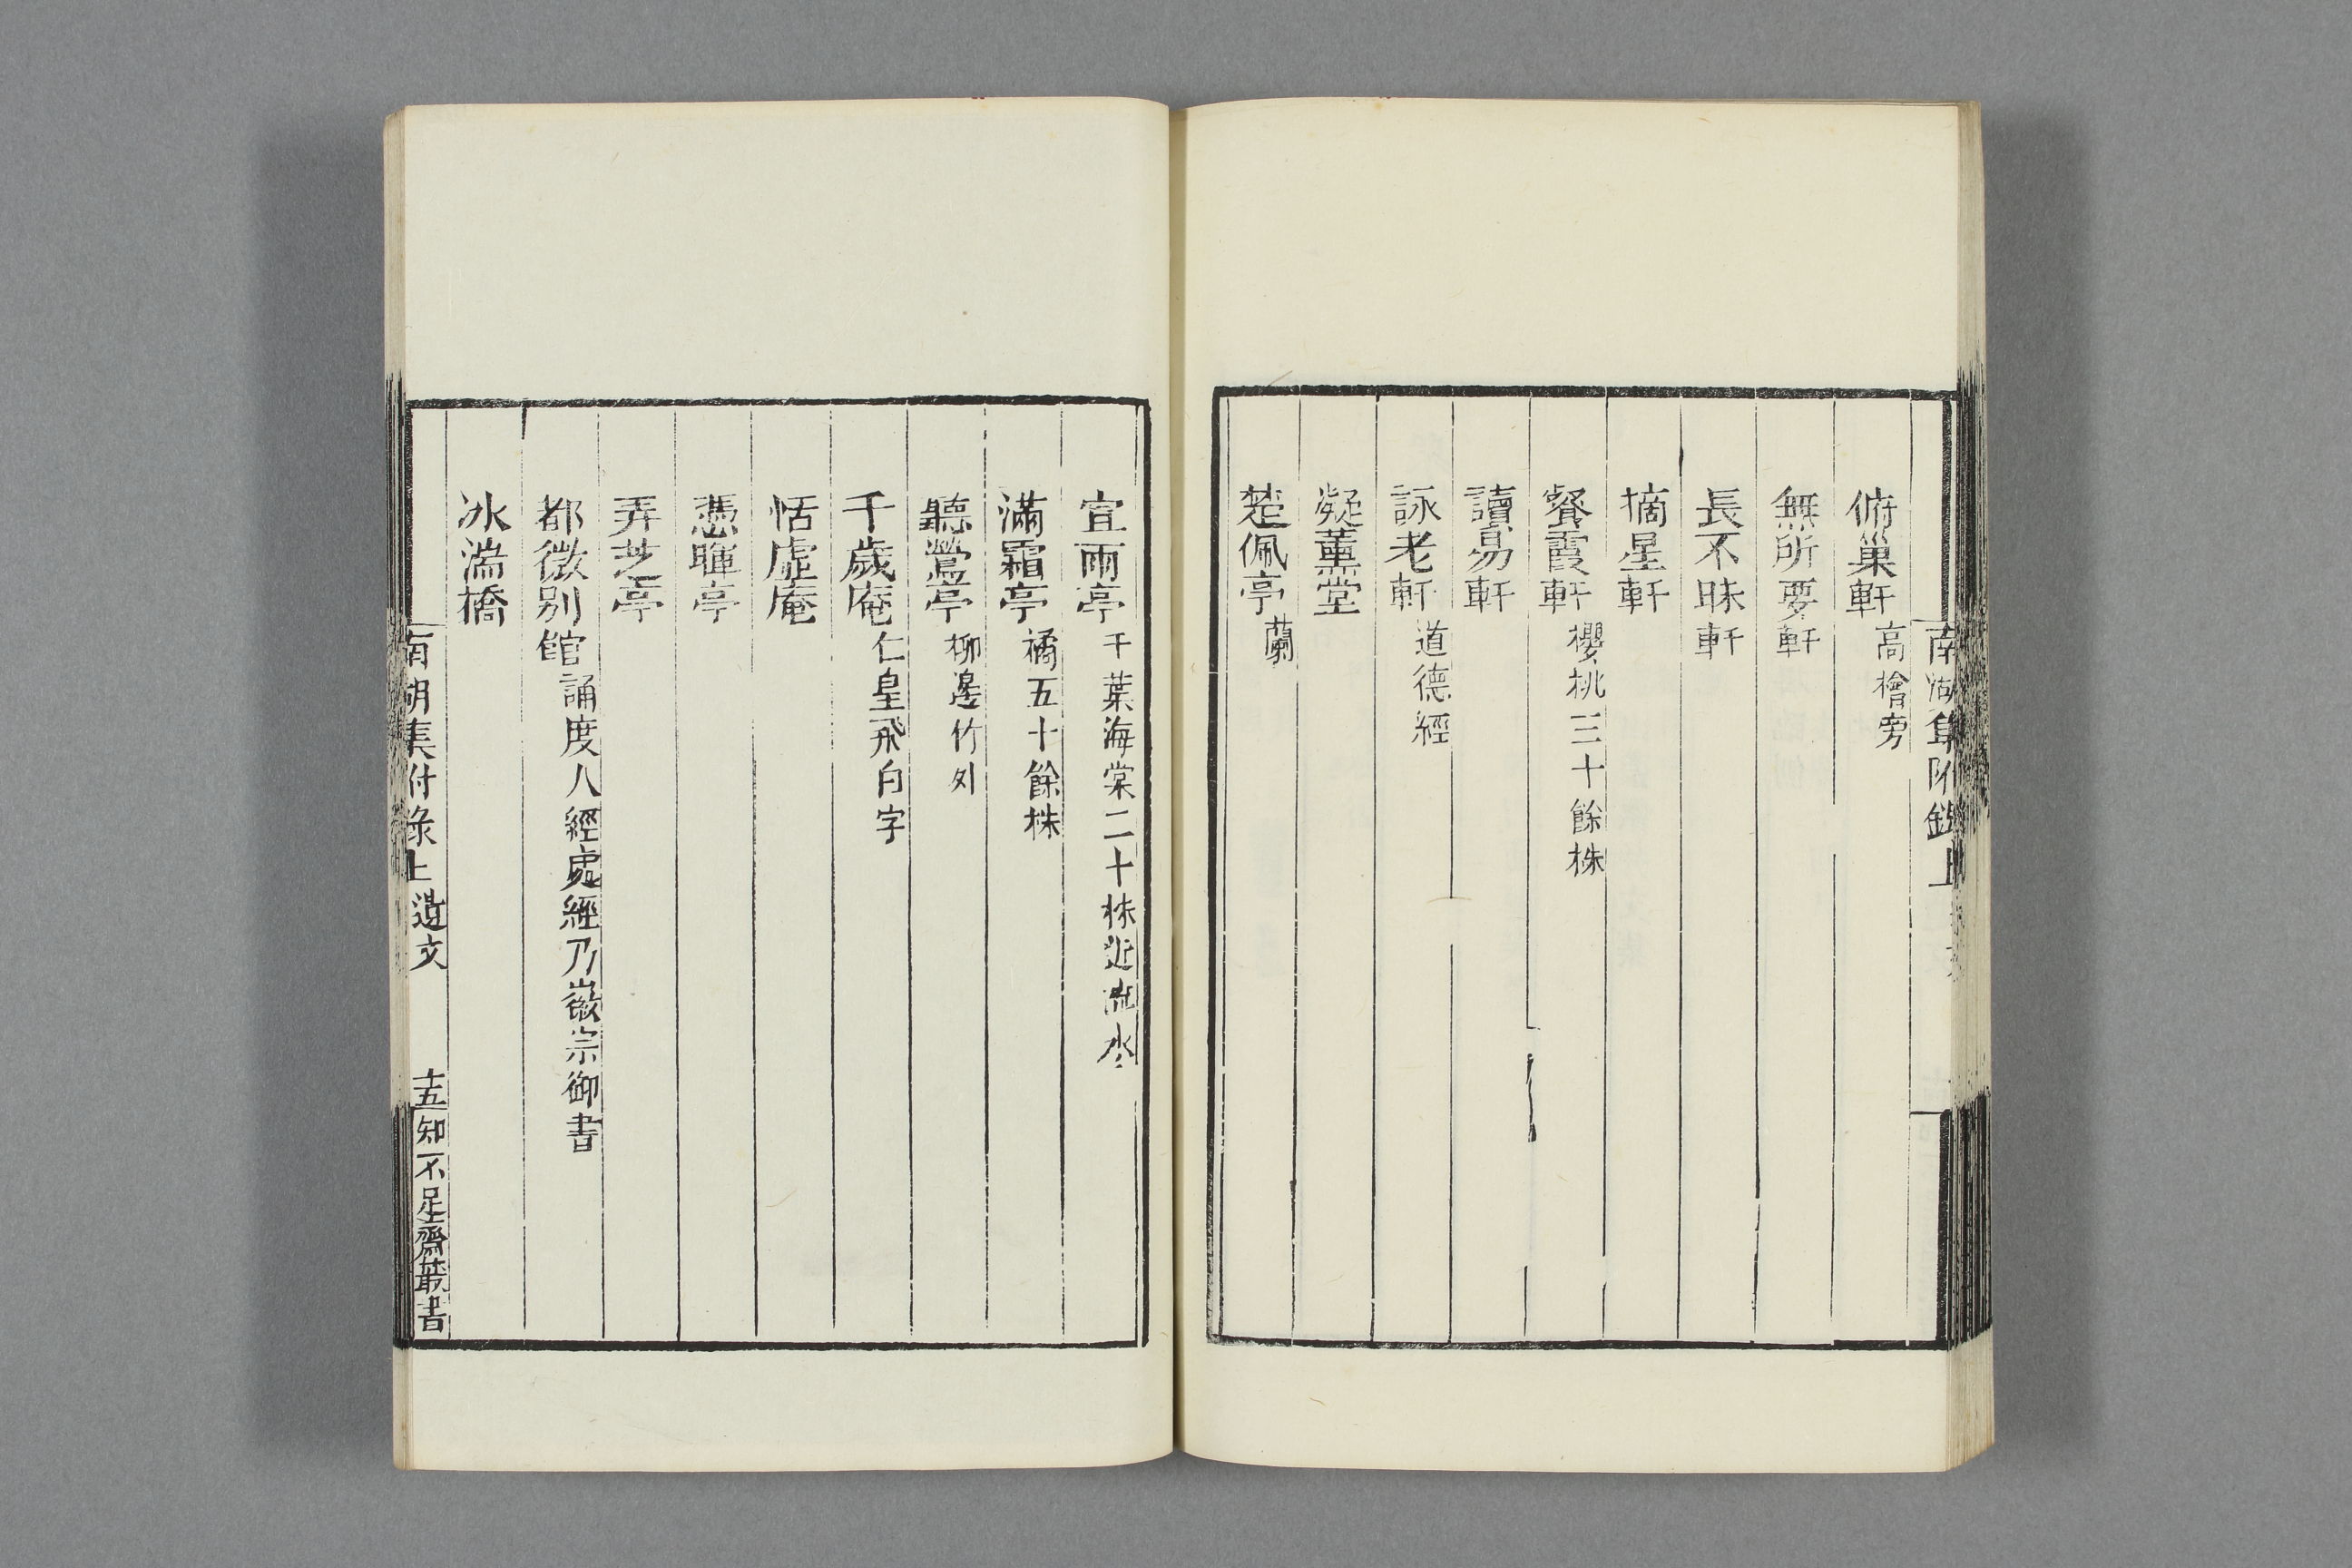 南湖集附錄上
俯巢軒高檜旁
無所要軒
長不昧軒
摘星軒
餐霞軒櫻桃三十餘株
讀易軒
詠老軒道德經
凝薰堂
楚佩亭蘭
宜雨亭千葉海棠二十株近流水
滿霜亭橘五十餘株
聽鶯亭柳邊竹外
千歲庵仁皇飛白字
恬虛庵
憑暉亭
弄芝亭
都微別館誦度人經處經乃徽宗御書
冰湍橋
南湖集附錄上 遺文 十五 知不足齋叢書